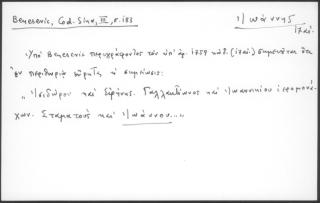 Benešević, Cod. Sin., III, σ. 183
Ἰωάννης
17 αἰ.
Ὑπὸ Benešević περιγράφοντος τὸν ὑπ' ἀρ. 1759 κώδ. (17 αἰ.) σημειοῦται ὅτι
ἐν
εὕρηται ἡ σημείωσις:
"Ἰσιδώρου καὶ Εἰρήνης. Γαλλακτίωνος καὶ Ἰωαννικίου ἱερομονά-
χων. Σταματοῦς καὶ Ἰωάννου..."